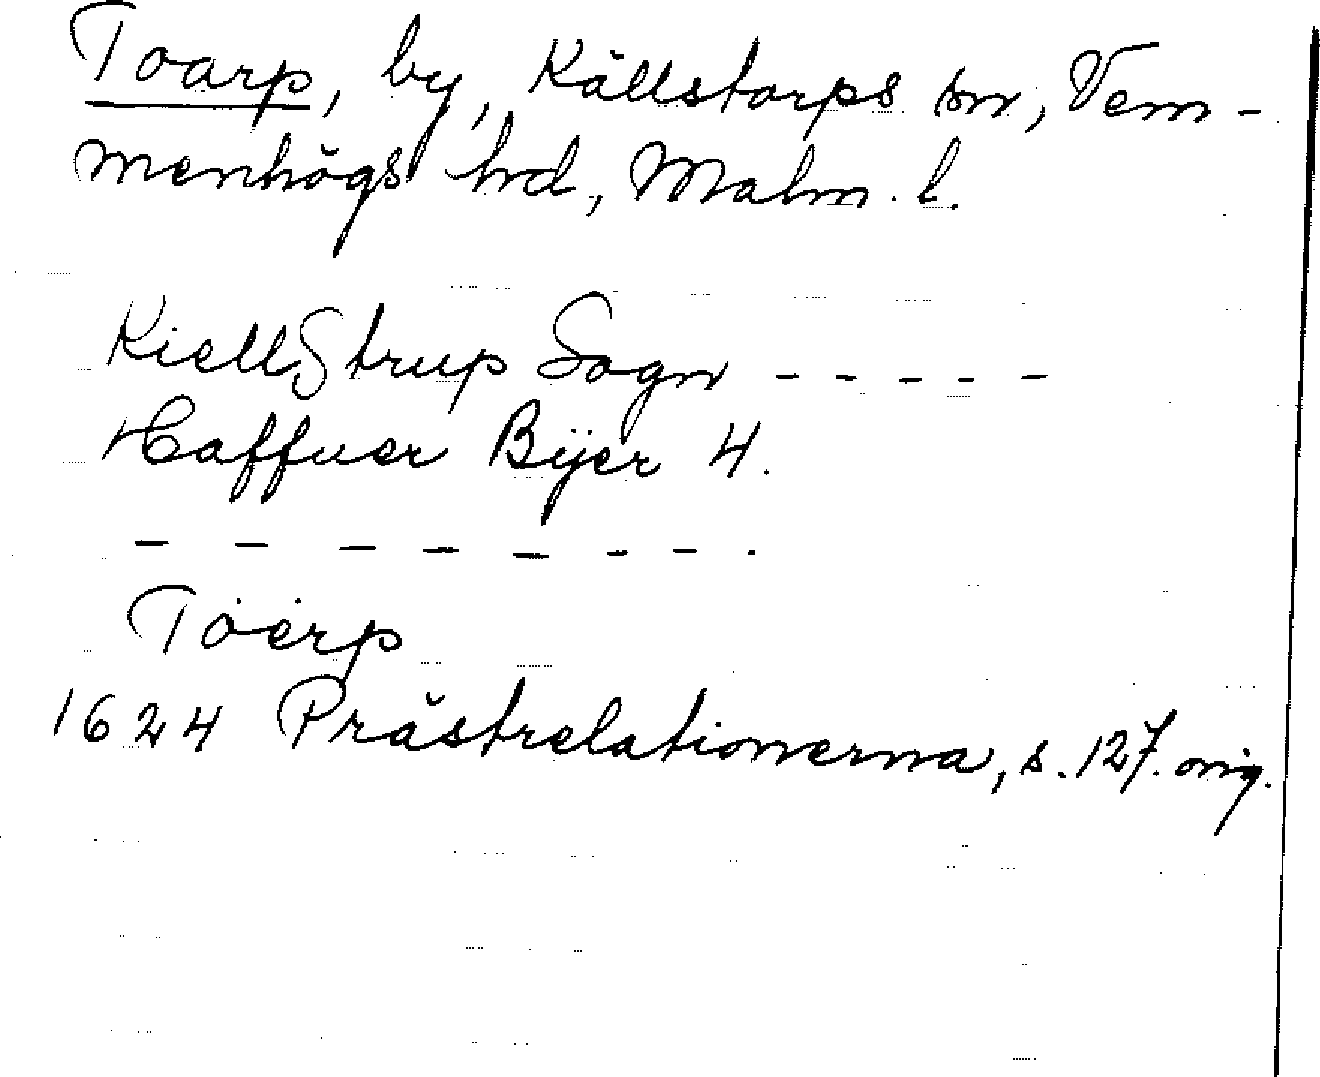 Toarp, by, Källstorps sn, Vem-
menhögs hd, Malm. l.
KiellStrup Sogn - - - - -
Haffuer Bÿer 4.
- - - - - - - .
Töerp
1624 Prästrelationerna, s. 127. orig.